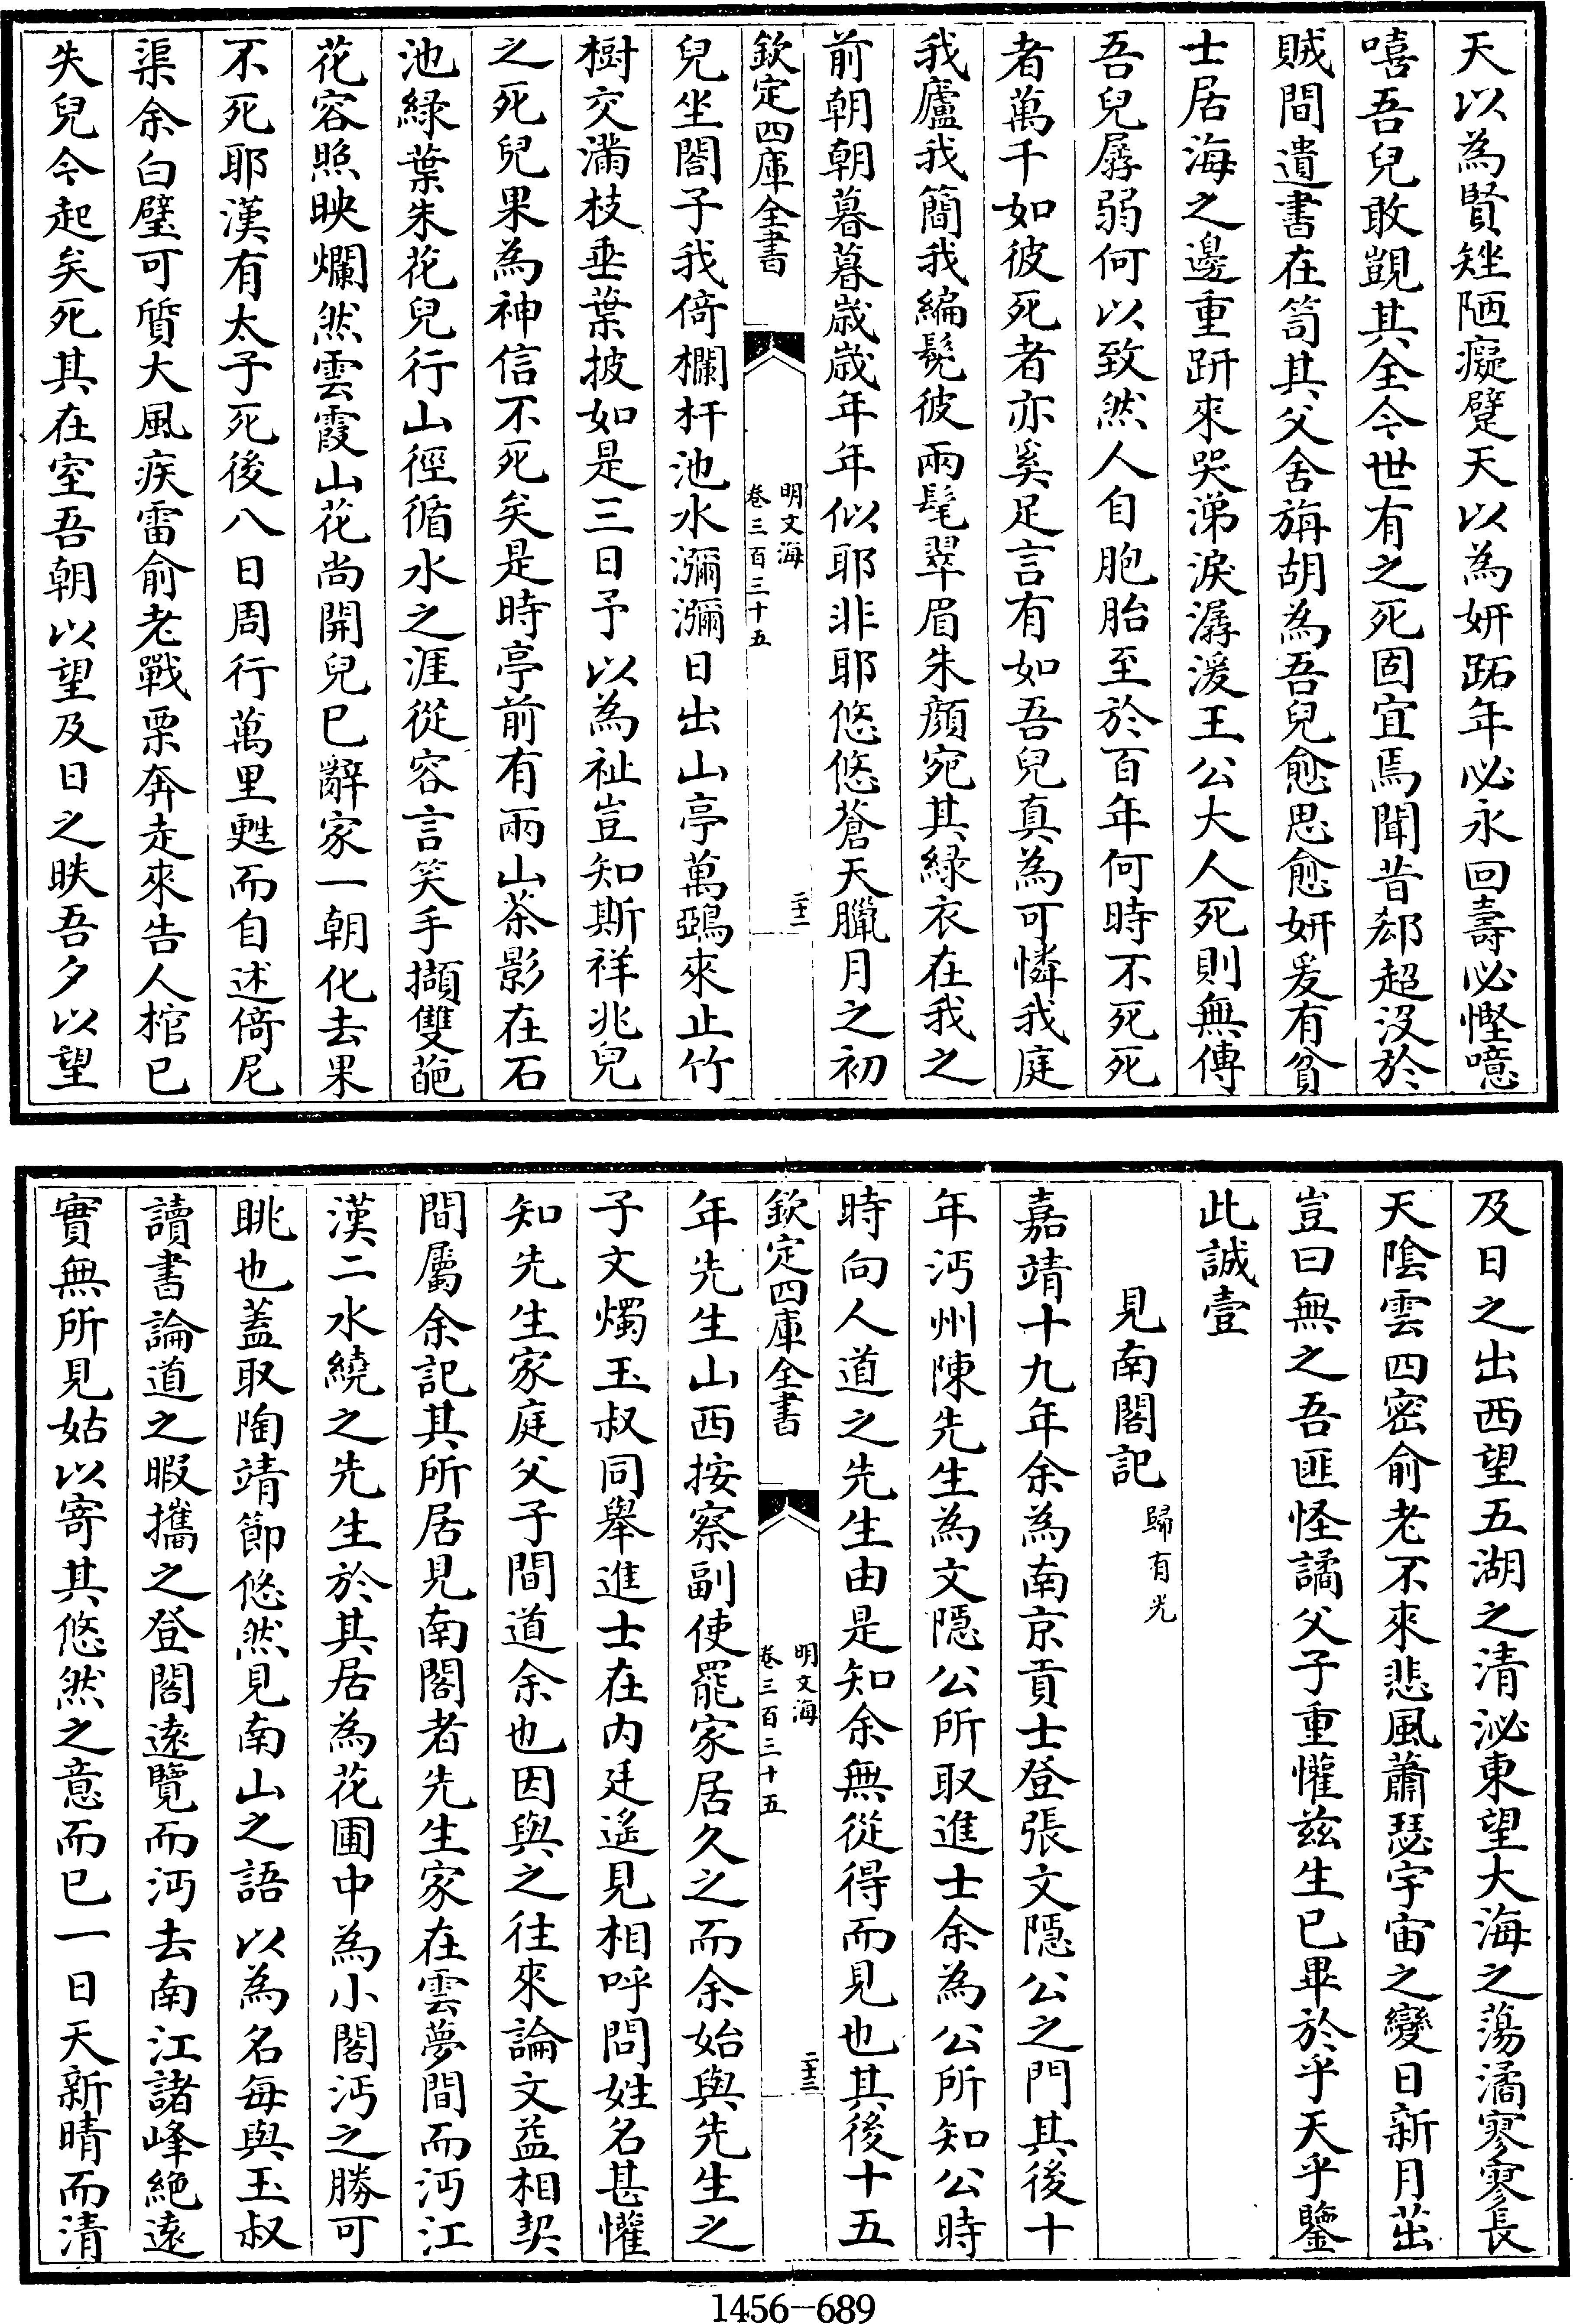 天以為賢矬陋癡躄天以為妍跖年必永回壽必慳噫
嘻吾兒敢覬其全今世有之死固宜焉聞昔郄超沒於
賊間遺書在笥其父舍旃胡為吾兒愈思愈妍爰有貧
士居海之邊重趼來哭涕淚潺湲王公大人死則無傳
吾兒孱弱何以致然人自胞胎至於百年何時不死死
者萬千如彼死者亦奚足言有如吾兒真為可憐我庭
我廬我簡我編髧彼兩髦翠眉朱顔宛其緑衣在我之
前朝朝暮暮歲歲年年似耶非耶悠悠蒼天臘月之初
欽定四庫全書
明文海
卷三百三十五
二十二
兒坐閣子我倚欄杆池水瀰瀰日出山亭萬鵶來止竹
樹交滿枝垂葉披如是三日予以為祉豈知斯祥兆兒
之死兒果為神信不死矣是時亭前有兩山茶影在石
池緑葉朱花兒行山徑循水之涯從容言笑手擷雙葩
花容照映爛然雲霞山花尚開兒已辭家一朝化去果
不死耶漢有太子死後八日周行萬里甦而自述倚尼
渠余白璧可質大風疾雷俞老戰栗奔走來告人棺已
失兒今起矣死其在室吾朝以望及日之昳吾夕以望
及日之出西望五湖之清泌東望大海之蕩潏寥寥長
天陰雲四密俞老不來悲風蕭瑟宇宙之變日新月茁
豈曰無之吾匪怪譎父子重懽兹生已畢於乎天乎鑒
此誠壹
見南閣記
歸有光
嘉靖十九年余為南京貢士登張文隱公之門其後十
年沔州陳先生為文隱公所取進士余為公所知公時
時向人道之先生由是知余無從得而見也其後十五
欽定四庫全書
明文海
卷三百三十五
二十三
年先生山西按察副使罷家居久之而余始與先生之
子文燭玉叔同舉進士在内廷遙見相呼問姓名甚懽
知先生家庭父子間道余也因與之往來論文益相契
間屬余記其所居見南閣者先生家在雲夢間而沔江
漢二水繞之先生於其居為花圃中為小閣沔之勝可
眺也蓋取陶靖節悠然見南山之語以為名每與玉叔
讀書論道之暇攜之登閣遠覽而沔去南江諸峰絶遠
實無所見姑以寄其悠然之意而已一日天新晴而清
1456-689